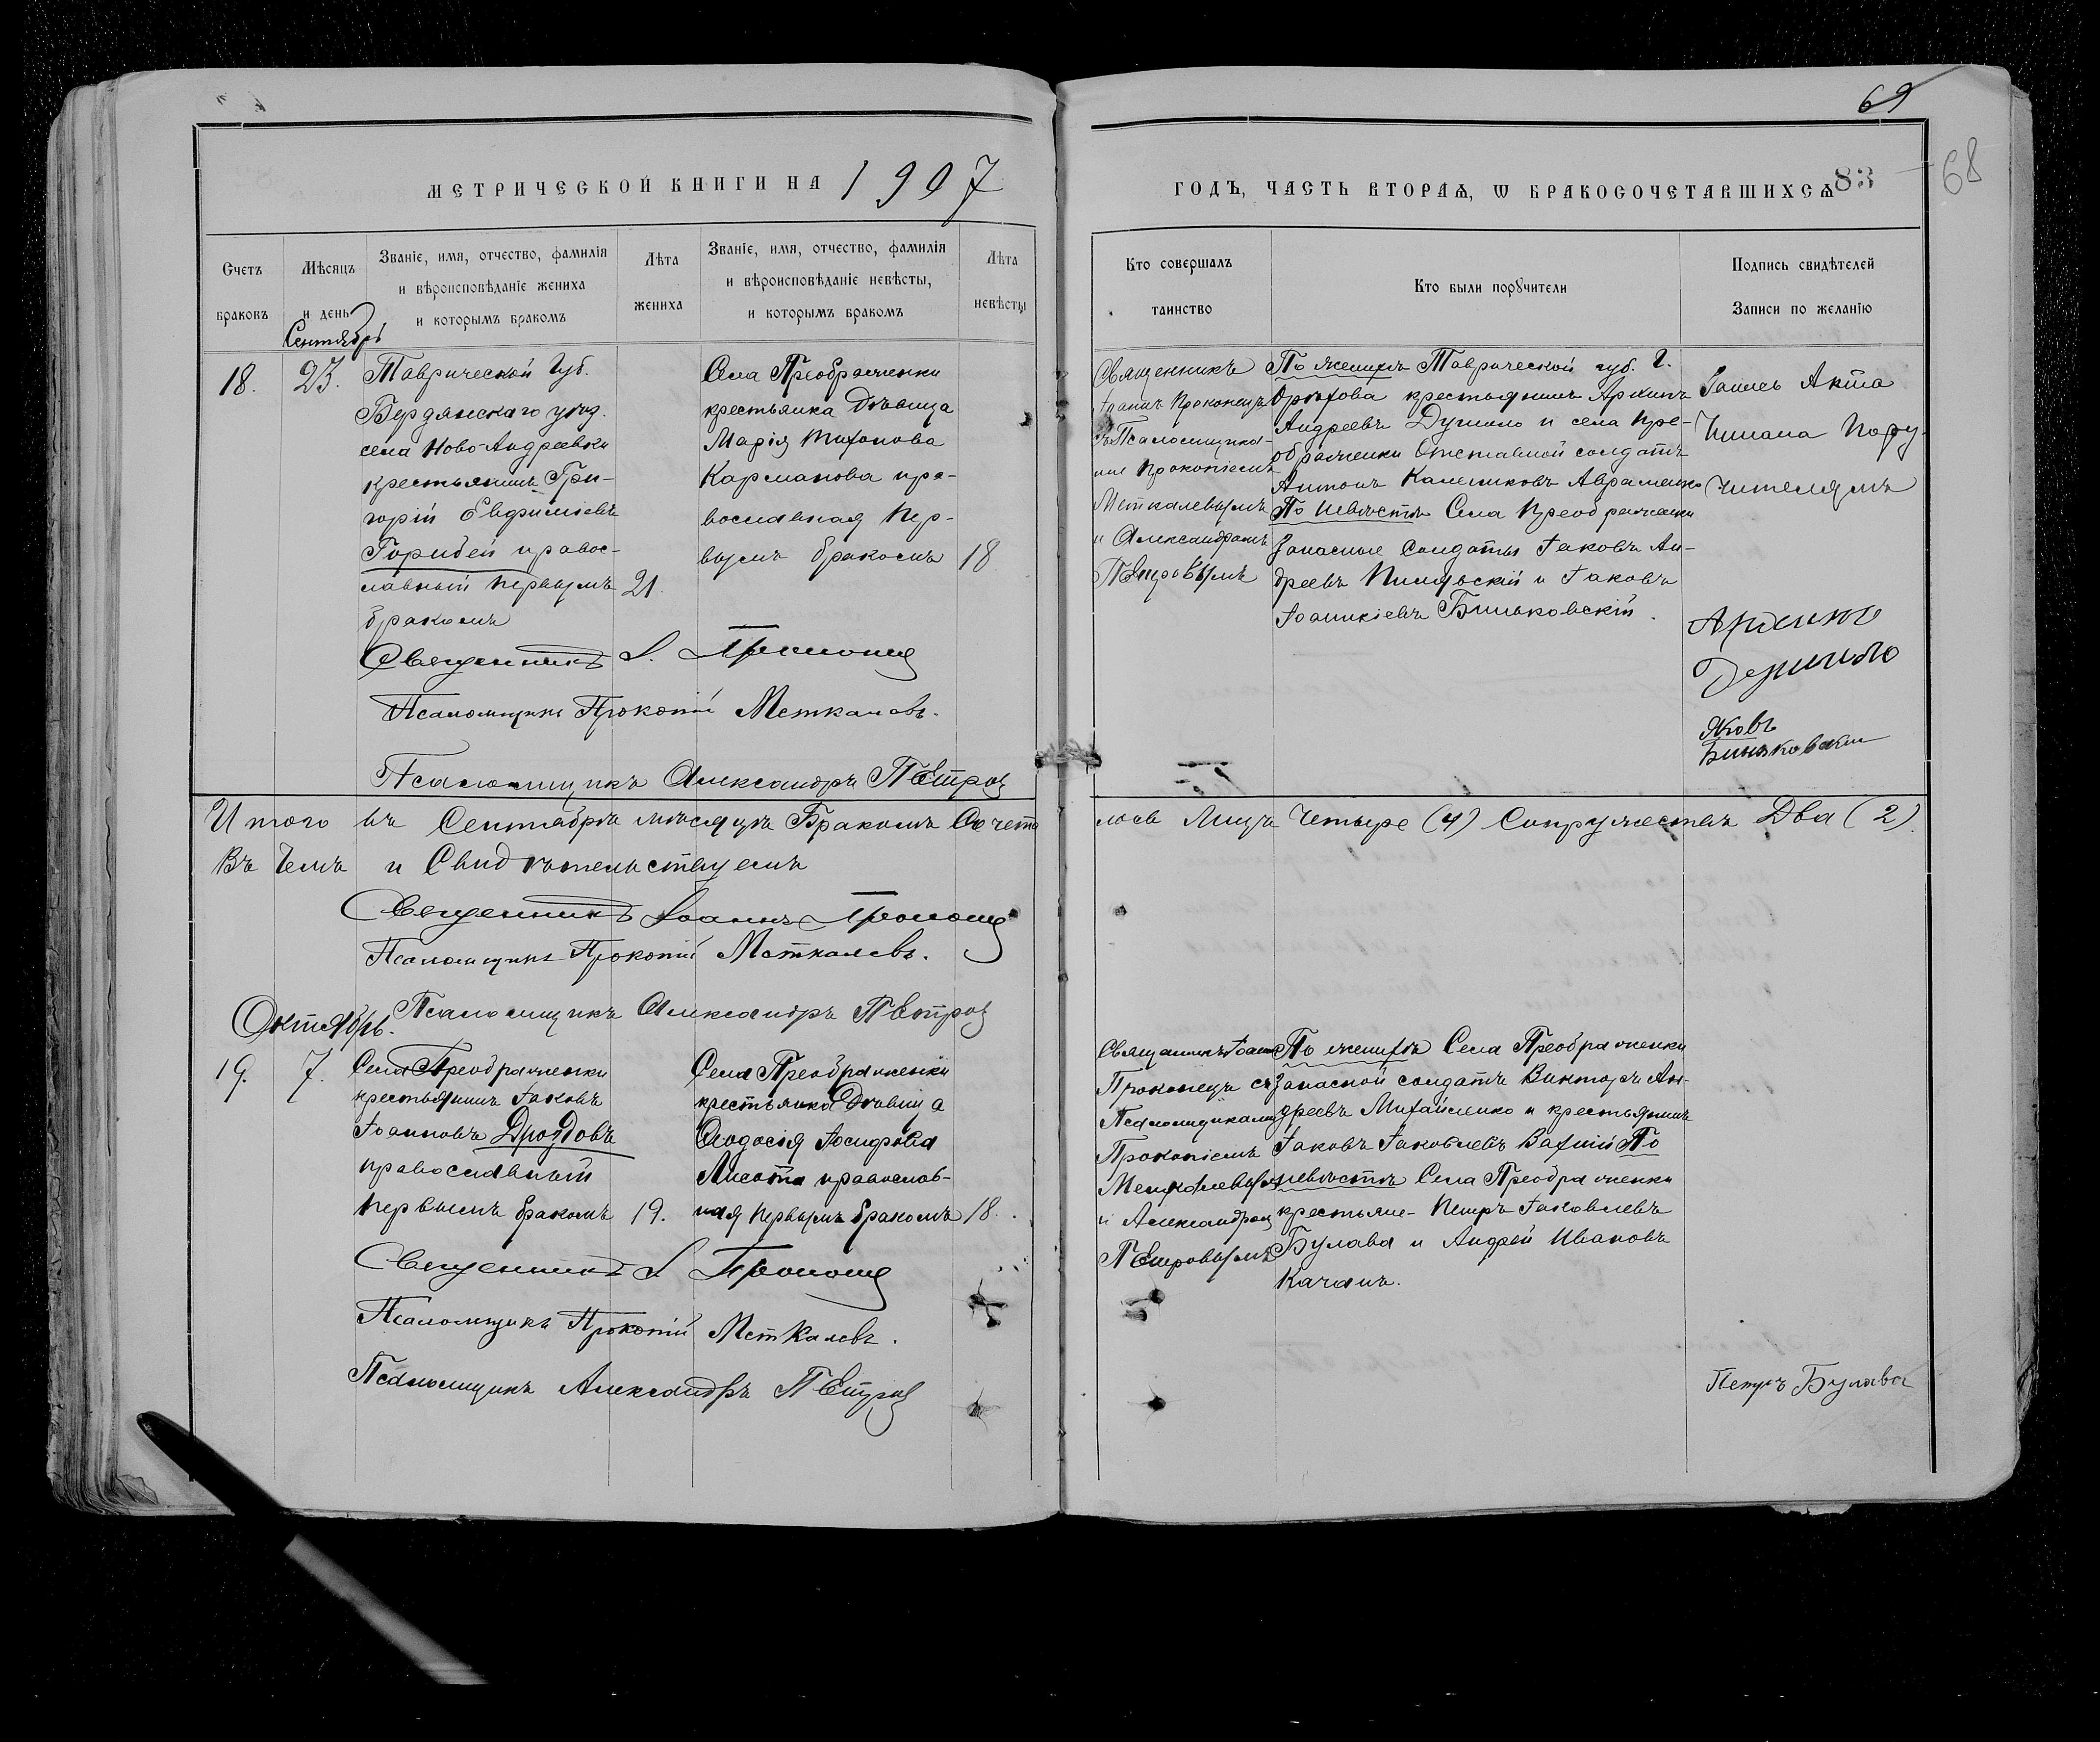 69
68
МЕТРИЧЕСКОЙ КНИГИ НА 1907
ГОДЪ, ЧАСТЬ ВТОРАѦ, Ѡ БРАКОСОЧЕТАВШИХСѦ 83
Счетъ браковъ
Мѣсяцъ и день
Званіе, имя, отчество, фамилія
и вѣроисповѣданіе жениха
и которымъ бракомъ
Лѣта жениха
Званіе, имя, отчество, фамилія
и вѣроисповѣданіе невѣсты,
и которымъ бракомъ
Лѣта невѣсты
Кто совершалъ таинство
Кто были порꙋчители
Подпись свидѣтелей
Записи по желанію
Сентябрь
18.
23.
Таврической Губ.
Бердянскаго уѣзд.
села Ново-Андреевки
крестьянинъ Гри-
горій Евфиміевъ
Горидей правос-
лавный первымъ
бракомъ
21.
Села Преображенки
крестьянка дѣвица
Марія Тихонова
Карманова пра-
вославная пер-
вымъ бракомъ
18
Священникъ
Іоаннъ Прокопецъ
съ Псаломщика-
ми Прокопіемъ
Меткалевымъ
и Александромъ
Петровымъ
По женихѣ Таврической губ. г.
Орѣхова крестьянинъ Архипъ
Андреевъ Думило и села Пре-
ображенки Отставной солдатъ
Антонъ Авраменко
По невѣстѣ Села Преображенки
Запасные Солдаты Іаковъ Ан-
дреевъ и Іаковъ
Іоанникіевъ Биньковскій.
Запись Акта
Читана Пору-
чителямъ
Яковъ
Биньковскій
Священникъ І. Прокопец
Псаломщикъ Прокопій Меткалевъ.
Псаломщикъ Александръ Петров
Итого въ Сентябрѣ мѣсяцѣ Бракомъ Сочета
лось Лицъ Четыре (4) Супружествъ Два (2).
Въ чемъ и Свидѣтельствуемъ
Священникъ Іоаннъ Прокопец
Псаломщикъ Прокопій Меткалевъ.
Псаломщикъ Александръ Петров
Октябрь.
19.
7.
Села Преображенки
крестьянинъ Іаковъ
Іоанновъ Дроздовъ
православный
первымъ бракомъ
19.
Села Преображенки
крестьянка Дѣвица
Ѳеодосія Іосифова
Лисота православ-
ная первымъ бракомъ
18.
Священникъ Іоаннъ
Прокопецъ съ
Псаломщиками
Прокопіемъ
Меткалевымъ
и Александром
Петровымъ
По женихѣ Села Преображенки
запасной солдатъ Викторъ Ан-
дреевъ Михайленко и крестьянинъ
Іаковъ Іаковлевъ Вахній По
невѣстѣ Села Преображенки
крестьяне- Петръ Іаковлевъ
Булава и Андрей Ивановъ
Качанъ.
Священникъ І Прокопец
Псаломщикъ Прокопій Меткалевъ.
Псаломщикъ Александръ Петров
Петръ Булава